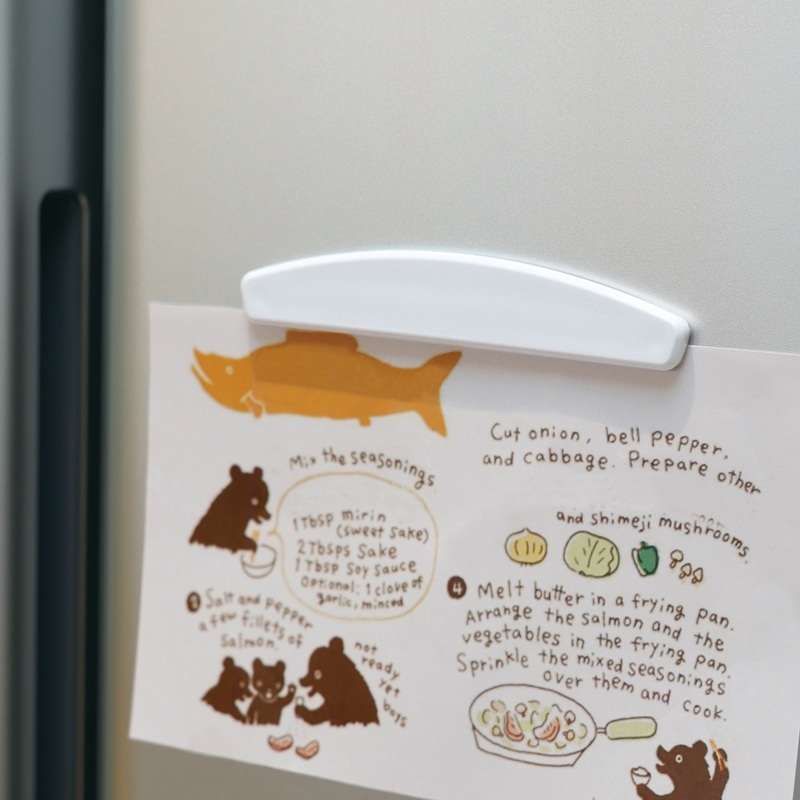 Mix the seasonings
1 Tbsp mirin
(sweet sake)
2 Tbsps Sake
1 Tbsp Soy Sauce
Optional: 1 clove of
garlic, minced
2 Salt and pepper
a few fillets of
salmon.
not
ready
yet
boys
Cut onion, bell pepper,
and cabbage. Prepare other
and shimeji mushrooms.
4 Melt butter in a frying pan.
Arrange the salmon and the
vegetables in the frying pan.
Sprinkle the mixed seasonings
over them and cook.